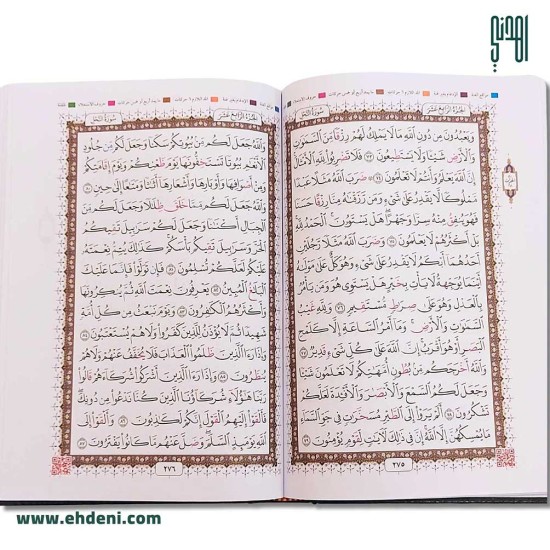 اهدني
الجزء الرابع عشر
سورة النحل
وَيَعْبُدُونَ مِن دُونِ اللَّهِ مَا لَا يَمْلِكُ لَهُمْ رِزْقًا مِّنَ السَّمَٰوَٰتِ
وَالْأَرْضِ شَيْئًا وَلَا يَسْتَطِيعُونَ ٧٣ فَلَا تَضْرِبُوا لِلَّهِ الْأَمْثَالَ
إِنَّ اللَّهَ يَعْلَمُ وَأَنتُمْ لَا تَعْلَمُونَ ٧٤ ضَرَبَ اللَّهُ مَثَلًا عَبْدًا
مَّمْلُوكًا لَّا يَقْدِرُ عَلَىٰ شَيْءٍ وَمَن رَّزَقْنَٰهُ مِنَّا رِزْقًا حَسَنًا
فَهُوَ يُنفِقُ مِنْهُ سِرًّا وَجَهْرًا هَلْ يَسْتَوُونَ الْحَمْدُ لِلَّهِ
بَلْ أَكْثَرُهُمْ لَا يَعْلَمُونَ ٧٥ وَضَرَبَ اللَّهُ مَثَلًا رَّجُلَيْنِ
أَحَدُهُمَا أَبْكَمُ لَا يَقْدِرُ عَلَىٰ شَيْءٍ وَهُوَ كَلٌّ عَلَىٰ مَوْلَىٰهُ
أَيْنَمَا يُوَجِّههُّ لَا يَأْتِ بِخَيْرٍ هَلْ يَسْتَوِي هُوَ وَمَن يَأْمُرُ
بِالْعَدْلِ وَهُوَ عَلَىٰ صِرَٰطٍ مُّسْتَقِيمٍ ٧٦ وَلِلَّهِ غَيْبُ
السَّمَٰوَٰتِ وَالْأَرْضِ وَمَا أَمْرُ السَّاعَةِ إِلَّا كَلَمْحِ
الْبَصَرِ أَوْ هُوَ أَقْرَبُ إِنَّ اللَّهَ عَلَىٰ كُلِّ شَيْءٍ قَدِيرٌ ٧٧
وَاللَّهُ أَخْرَجَكُم مِّن بُطُونِ أُمَّهَٰتِكُمْ لَا تَعْلَمُونَ شَيْئًا
وَجَعَلَ لَكُمُ السَّمْعَ وَالْأَبْصَٰرَ وَالْأَفْئِدَةَ لَعَلَّكُمْ
تَشْكُرُونَ ٧٨ أَلَمْ يَرَوْا إِلَى الطَّيْرِ مُسَخَّرَٰتٍ فِي جَوِّ السَّمَاءِ
مَا يُمْسِكُهُنَّ إِلَّا اللَّهُ إِنَّ فِي ذَٰلِكَ لَآيَٰتٍ لِّقَوْمٍ يُؤْمِنُونَ ٧٩
٢٧٥
الجزء الرابع عشر
سورة النحل
وَاللَّهُ جَعَلَ لَكُم مِّن بُيُوتِكُمْ سَكَنًا وَجَعَلَ لَكُم مِّن جُلُودِ
الْأَنْعَٰمِ بُيُوتًا تَسْتَخِفُّونَهَا يَوْمَ ظَعْنِكُمْ وَيَوْمَ إِقَامَتِكُمْ
وَمِنْ أَصْوَافِهَا وَأَوْبَارِهَا وَأَشْعَارِهَا أَثَٰثًا وَمَتَٰعًا إِلَىٰ حِينٍ ٨٠
وَاللَّهُ جَعَلَ لَكُم مِّمَّا خَلَقَ ظِلَٰلًا وَجَعَلَ لَكُم مِّنَ
الْجِبَالِ أَكْنَٰنًا وَجَعَلَ لَكُمْ سَرَٰبِيلَ تَقِيكُمُ
الْحَرَّ وَسَرَٰبِيلَ تَقِيكُم بَأْسَكُمْ كَذَٰلِكَ يُتِمُّ نِعْمَتَهُ
عَلَيْكُمْ لَعَلَّكُمْ تُسْلِمُونَ ٨١ فَإِن تَوَلَّوْا فَإِنَّمَا عَلَيْكَ
الْبَلَٰغُ الْمُبِينُ ٨٢ يَعْرِفُونَ نِعْمَتَ اللَّهِ ثُمَّ يُنكِرُونَهَا
وَأَكْثَرُهُمُ الْكَٰفِرُونَ ٨٣ وَيَوْمَ نَبْعَثُ مِن كُلِّ أُمَّةٍ
شَهِيدًا ثُمَّ لَا يُؤْذَنُ لِلَّذِينَ كَفَرُوا وَلَا هُمْ يُسْتَعْتَبُونَ ٨٤
وَإِذَا رَءَا الَّذِينَ ظَلَمُوا الْعَذَابَ فَلَا يُخَفَّفُ عَنْهُمْ وَلَا هُمْ
يُنظَرُونَ ٨٥ وَإِذَا رَءَا الَّذِينَ أَشْرَكُوا شُرَكَاءَهُمْ قَالُوا
رَبَّنَا هَٰؤُلَاءِ شُرَكَاؤُنَا الَّذِينَ كُنَّا نَدْعُوا مِن دُونِكَ
فَأَلْقَوْا إِلَيْهِمُ الْقَوْلَ إِنَّكُمْ لَكَٰذِبُونَ ٨٦ وَأَلْقَوْا إِلَى
اللَّهِ يَوْمَئِذٍ السَّلَمَ وَضَلَّ عَنْهُم مَّا كَانُوا يَفْتَرُونَ ٨٧
٢٧٦
www.ehdeni.com